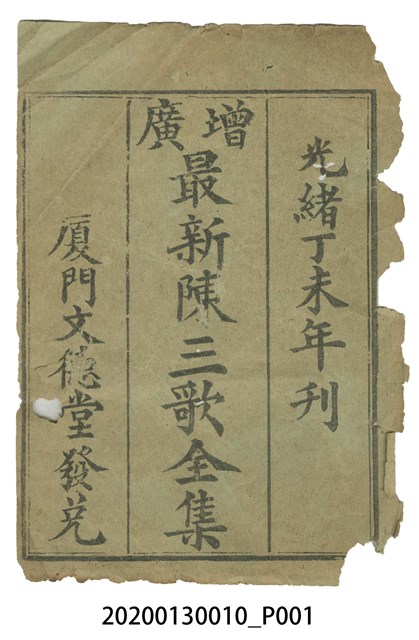 光緒丁未年刊
增廣
最新陳三歌全集
廈門文德堂發兌
20200130010_P001